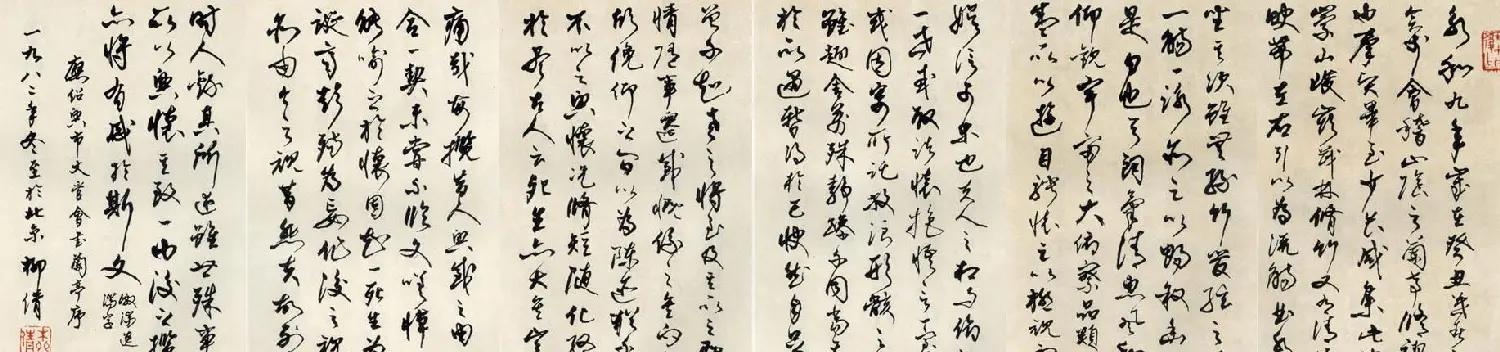 永和九年歲在癸丑暮春
會於會稽山陰之蘭亭脩禊
也羣賢畢至少長咸集此
崇山峻嶺茂林脩竹又有清
映帶左右引以為流觴曲
坐其次雖無絲竹管絃之
一觴一詠亦足以暢敘幽
是日也天朗氣清惠風和
仰觀宇宙之大俯察品類
盛所以遊目騁懷足以極視
娛信可樂也夫人之相與俯
一世或取諸懷抱悟言一室
或因寄所託放浪形骸之
雖趣舍萬殊靜躁不同當
於所遇暫得於己快然自足
曾不知老之將至及其所之
情隨事遷感慨係之矣向
欣俛仰之間以為陳迹猶不
不以之興懷況脩短隨化終
於盡古人云死生亦大矣豈
痛哉每攬昔人興感之由
合一契未嘗不臨文嗟悼
能喻之於懷固知一死生為
誕齊彭殤為妄作後之視
亦由今之視昔悲夫故列
時人錄其所述雖世殊事
所以興懷其致一也後之攬
亦將有感於斯文
應紹興市文管會書蘭亭序
一九八二年冬至於北京柳倩